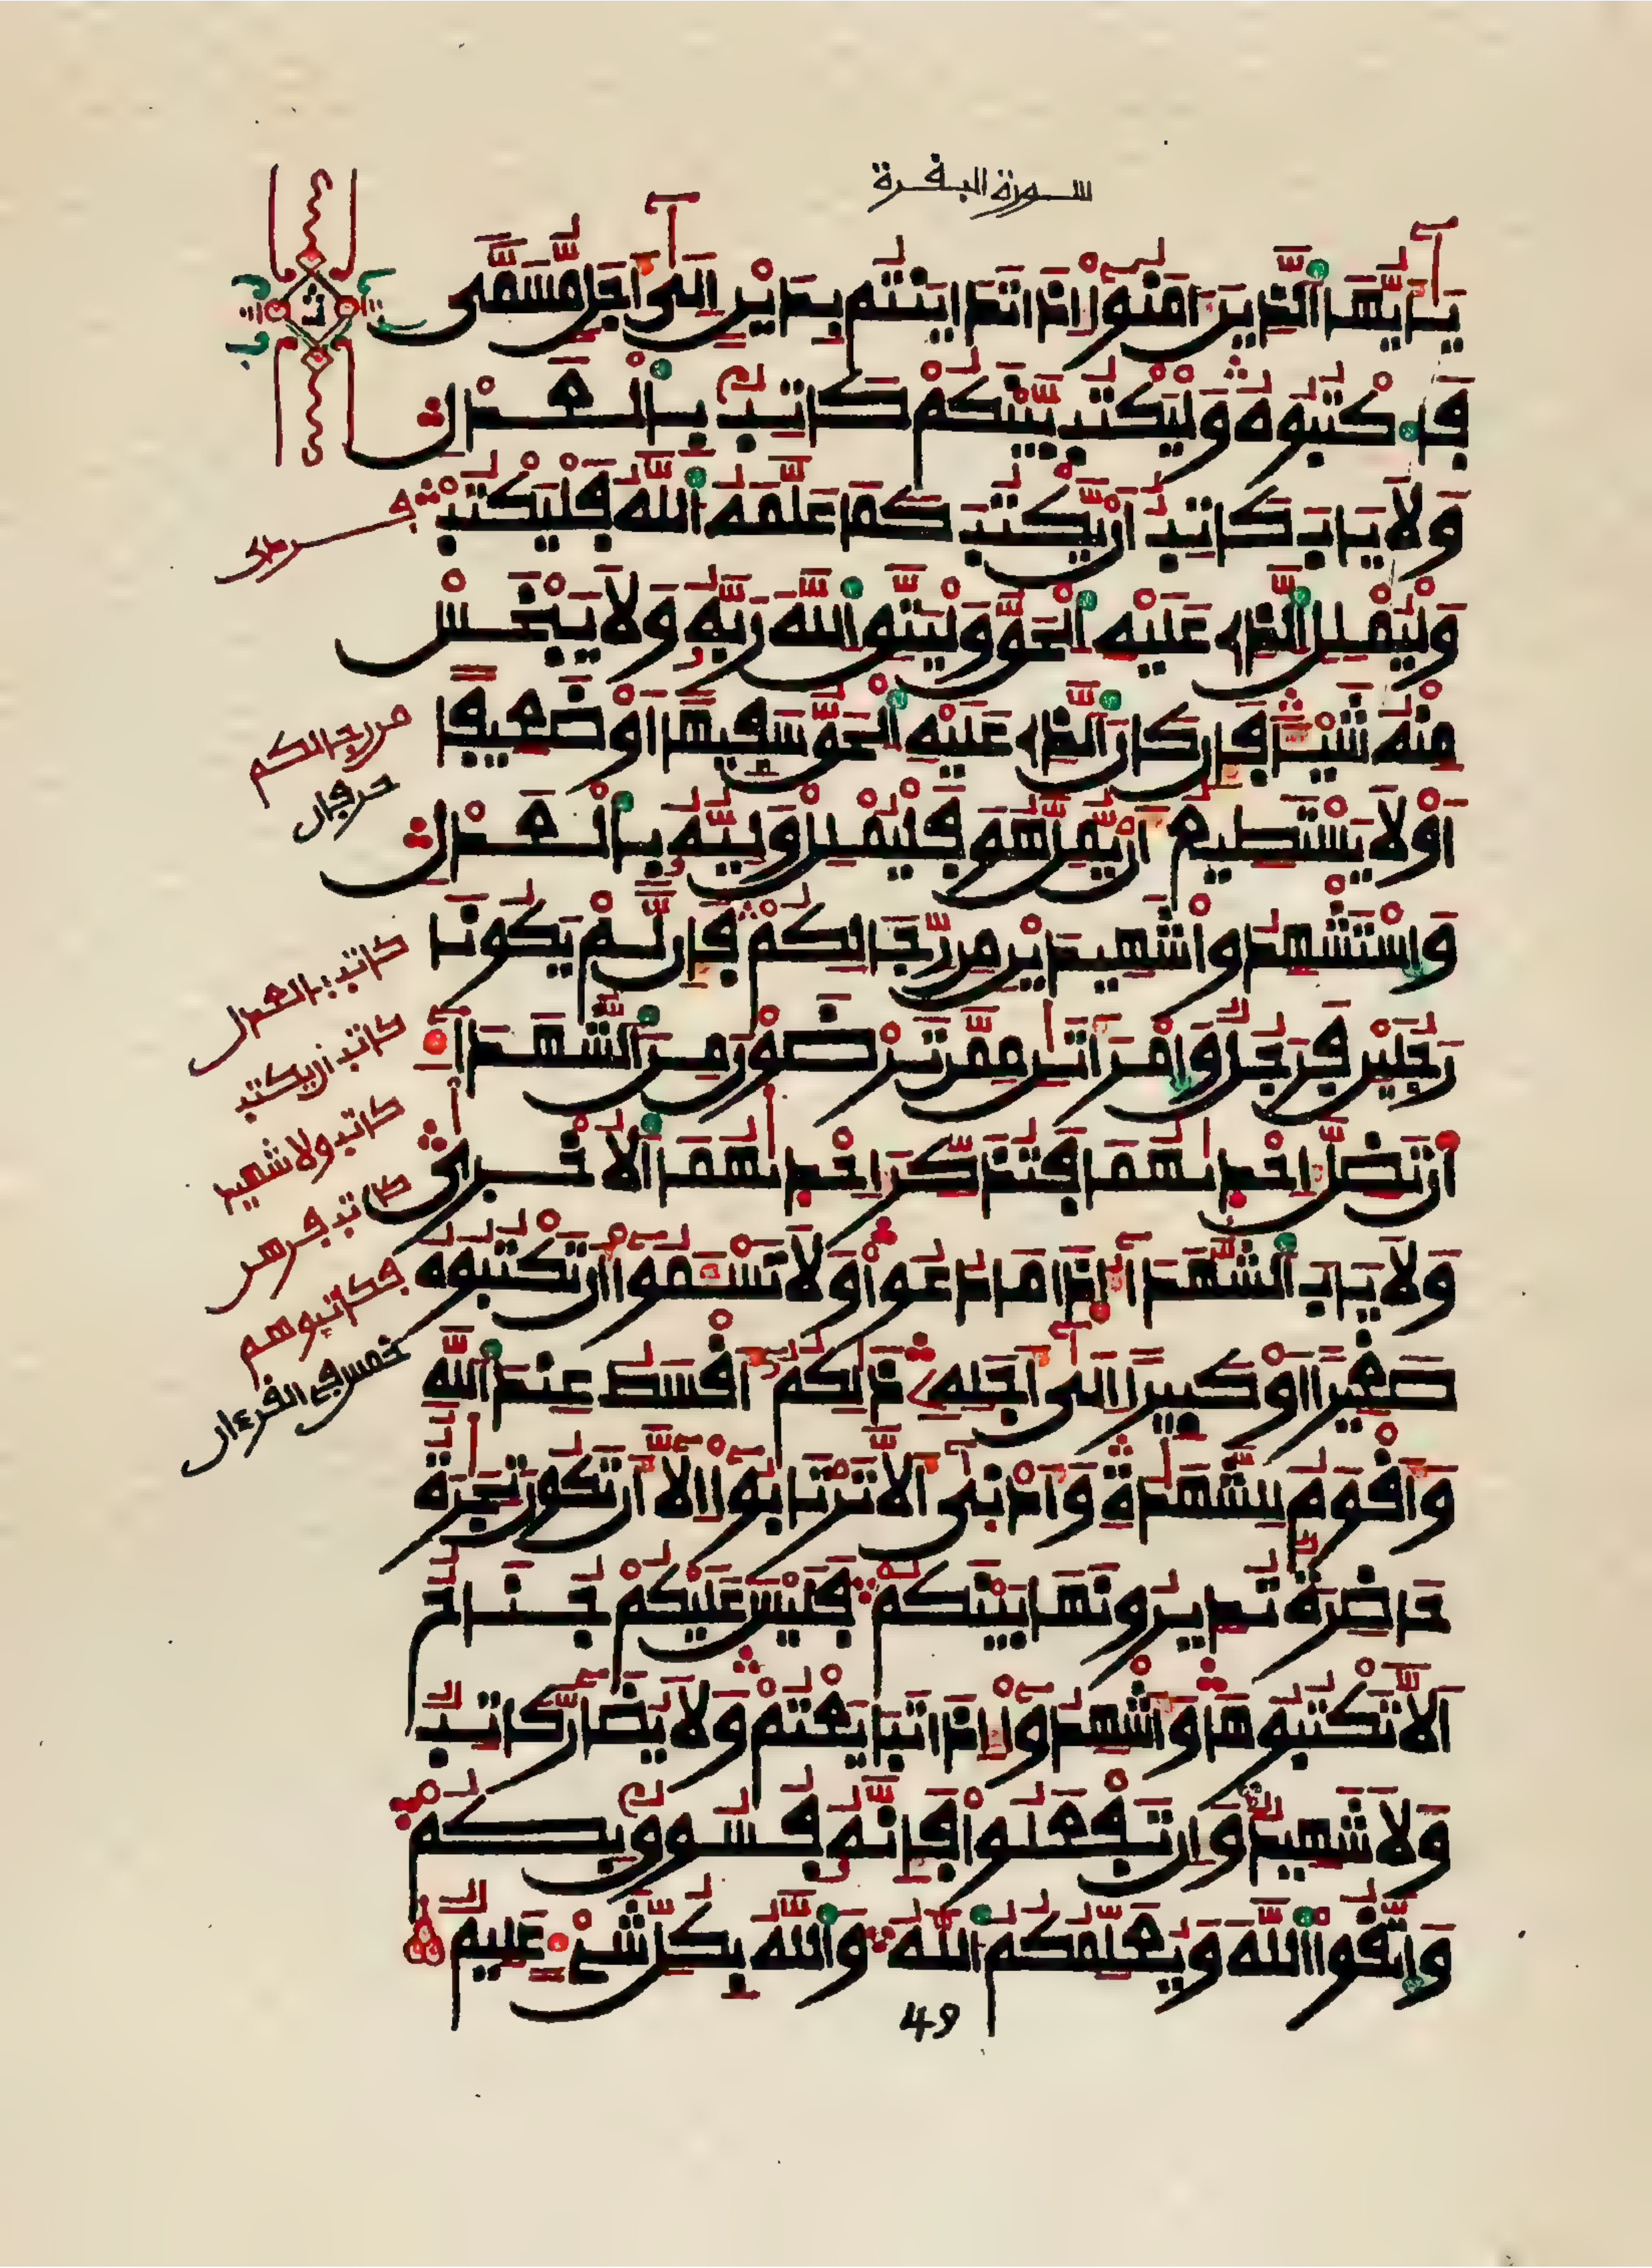 سورة البقرة
يَٰٓأَيُّهَا اَ۬لذِينَ ءَامَنُوٓاْ إِذَا تَدَايَنتُم بِدَيْنٍ إِلَىٰٓ أَجَلٖ مُّسَمّٗى
فَاكْتُبُوهُ وَلْيَكْتُب بَّيْنَكُمْ كَاتِبُۢ بِالْعَدْلِ
وَلَا يَابَ كَاتِبٌ أَنْ يَّكْتُبَ كَمَا عَلَّمَهُ اُ۬للَّهُ فَلْيَكْتُبْ
وَلْيُمْلِلِ اِ۬لذِے عَلَيْهِ اِ۬لْحَقُّ وَلْيَتَّقِ اِ۬للَّهَ رَبَّهُۥ وَلَا يَبْخَسْ
مِنْهُ شَيْـٔاٗ فَإِن كَانَ اَ۬لذِے عَلَيْهِ اِ۬لْحَقُّ سَفِيهاً أَوْ ضَعِيفاً
أَوْ لَا يَسْتَطِيعُ أَنْ يُّمِلَّ هُوَ فَلْيُمْلِلْ وَلِيُّهُۥ بِالْعَدْلِ
وَاسْتَشْهِدُواْ شَهِيدَيْنِ مِن رِّجَالِكُمْ فَإِن لَّمْ يَكُونَا
رَجُلَيْنِ فَرَجُلٞ وَامْرَأَتَٰنِ مِمَّن تَرْضَوْنَ مِنَ اَ۬لشُّهَدَآءِ
اَ۬ن تَضِلَّ إِحْدَىٰهُمَا فَتُذَكِّرَ إِحْدَىٰهُمَا اَ۬لُاخْرَىٰ
وَلَا يَابَ اَ۬لشُّهَدَآءُ اِ۪ذَا مَا دُعُواْ وَلَا تَسْـَٔمُوٓاْ أَن تَكْتُبُوهُ
صَغِيراً أَوْ كَبِيراً إِلَىٰٓ أَجَلِهِۦ ذَٰلِكُمُۥٓ أَقْسَطُ عِندَ اَ۬للَّهِ
وَأَقْوَمُ لِلشَّهَٰدَةِ وَأَدْنَىٰٓ أَلَّا تَرْتَابُوٓاْ إِلَّآ أَن تَكُونَ تِجَٰرَةٌ
حَاضِرَةٞ تُدِيرُونَهَا بَيْنَكُمْ فَلَيْسَ عَلَيْكُمْ جُنَاحٌ
اَلَّا تَكْتُبُوهَا وَأَشْهِدُوٓاْ إِذَا تَبَايَعْتُمْ وَلَا يُضَآرَّ كَاتِبٞ
وَلَا شَهِيدٞ وَإِن تَفْعَلُواْ فَإِنَّهُۥ فُسُوقُۢ بِكُمْ
وَاتَّقُواْ اُ۬للَّهَ وَيُعَلِّمُكُمُ اُ۬للَّهُ وَاللَّهُ بِكُلِّ شَےْءٍ عَلِيمٞ
49
من رجالكم
حرفان
كاتب بالعدل
كاتب ان يكتب
كاتب ولا شهيد
كاتب فرهن
فكاتبوهم
خمس في القرءان